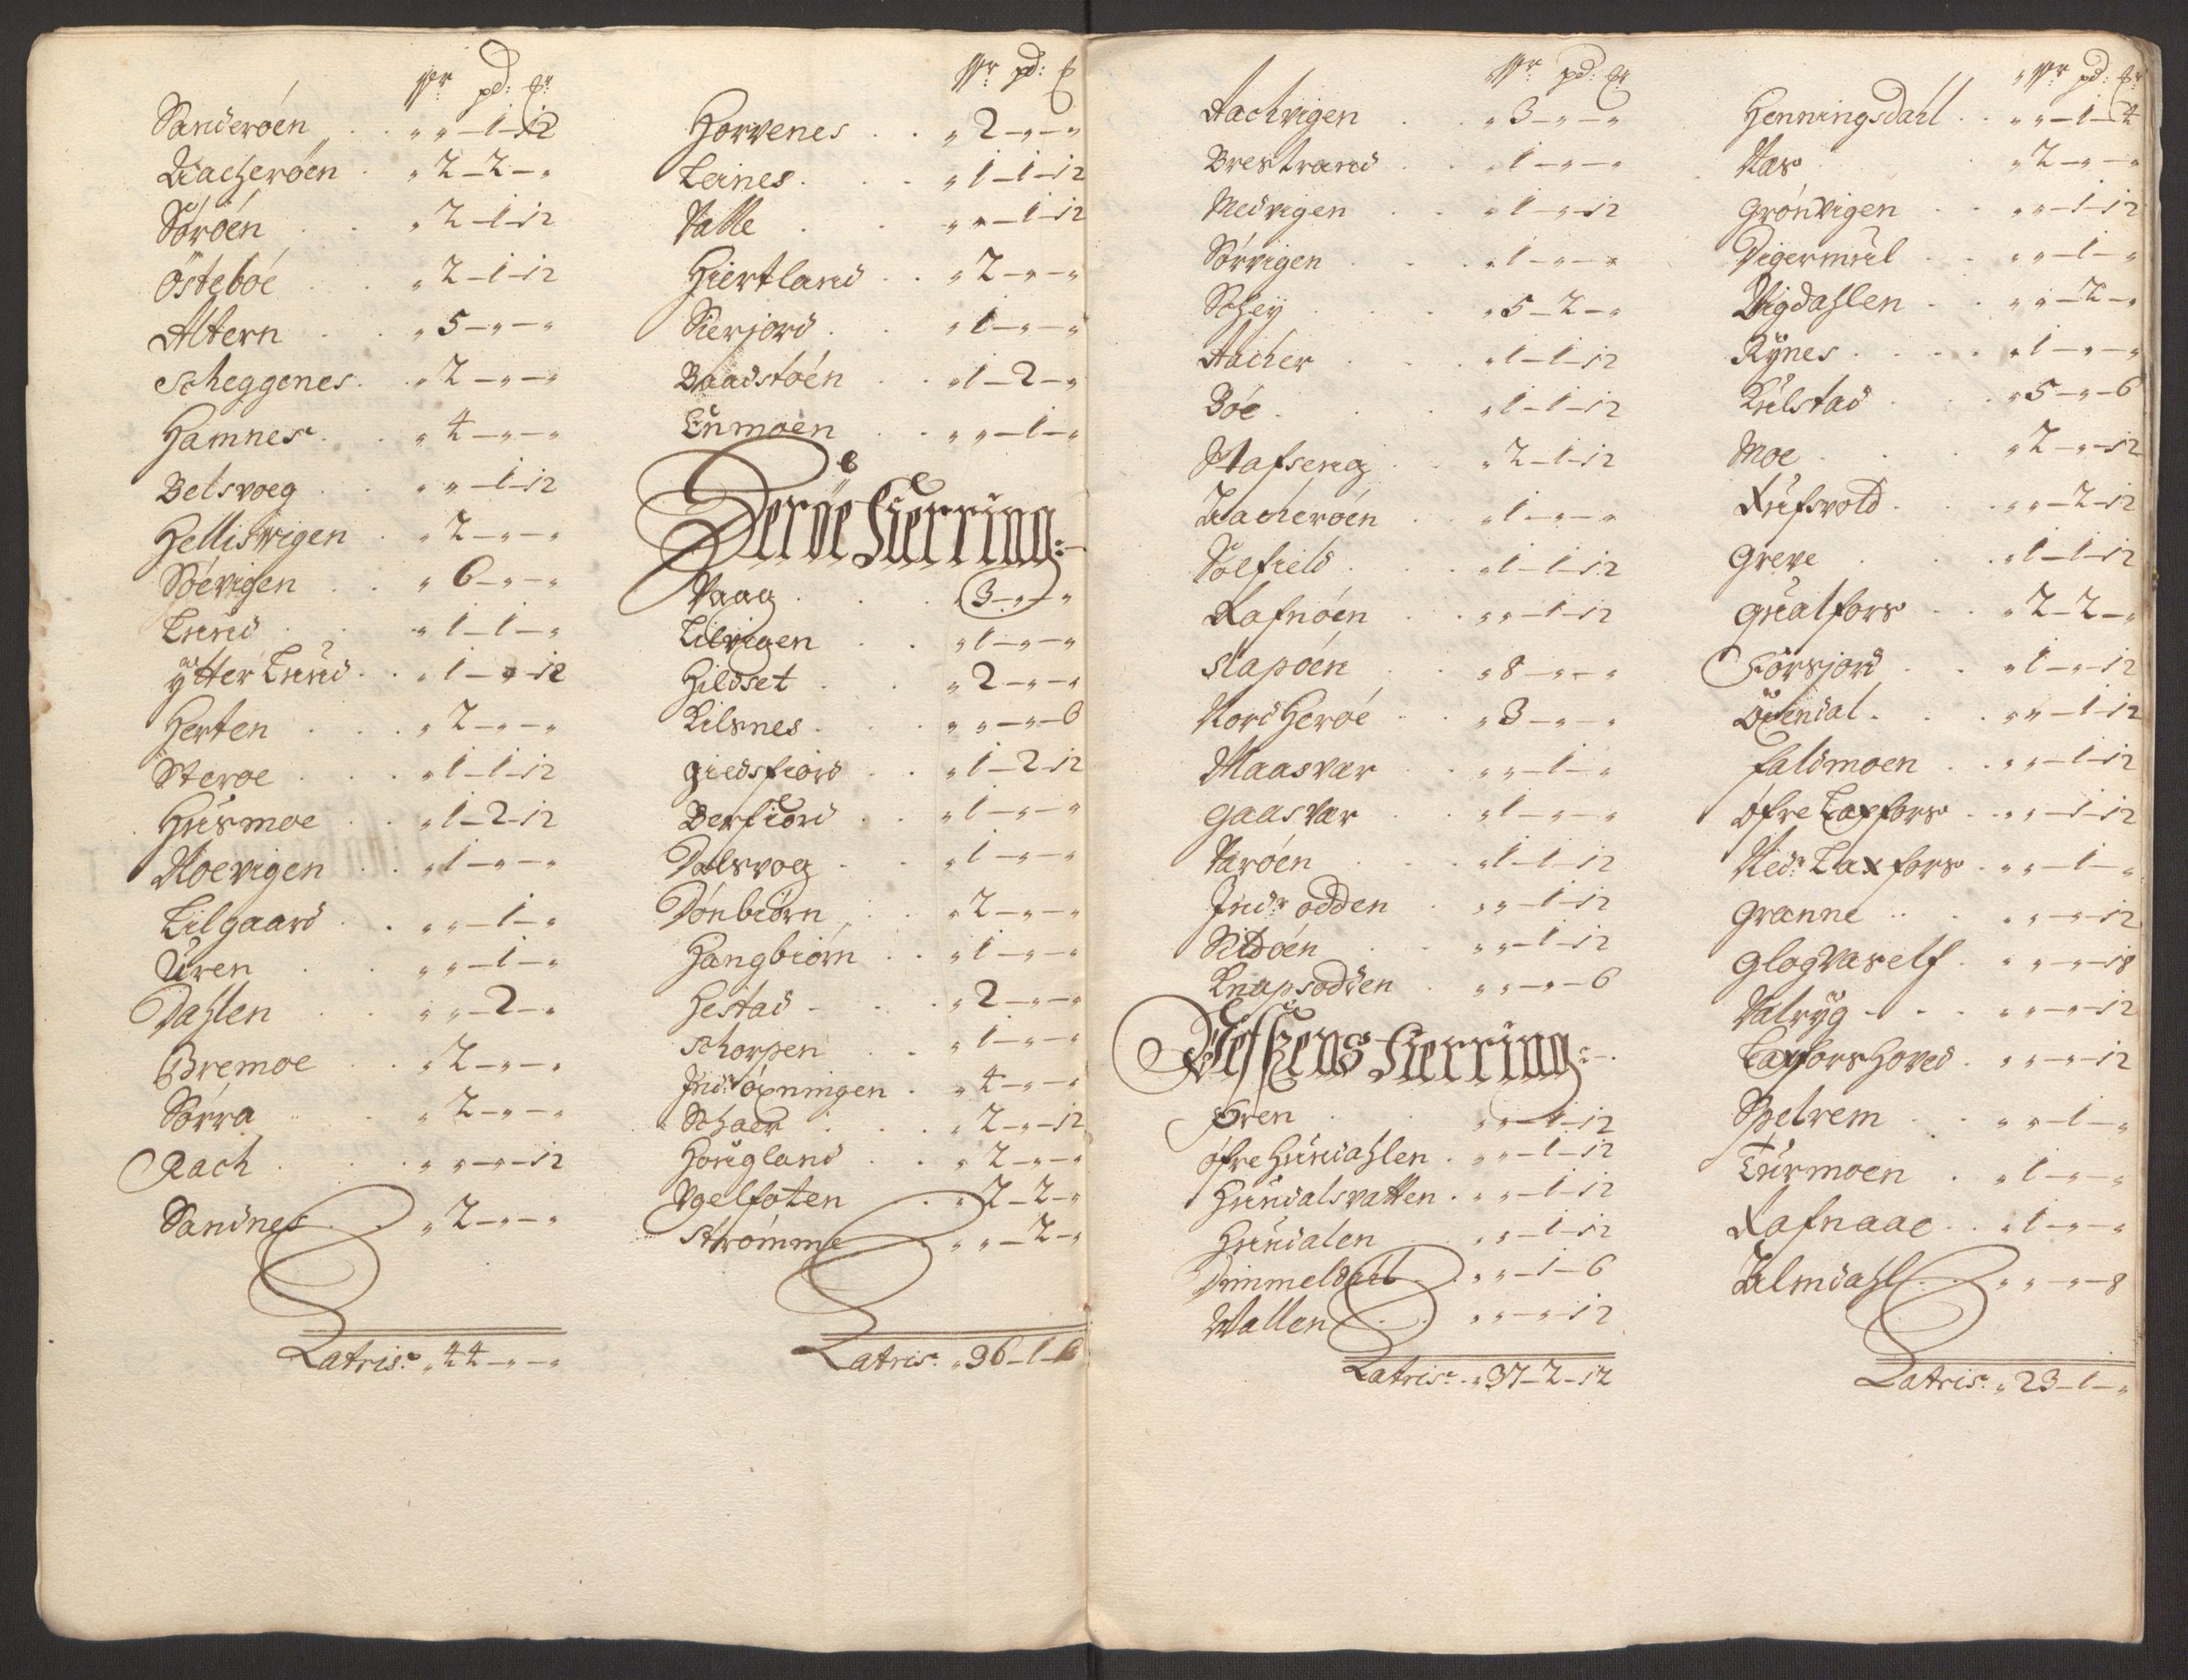 pd:
Sanderöen . . „ „ – 1 – 12
Aacheröen . „ 2 – 2 – „
Söröen . . „ 2 – 1 – 12
Östeböe . . „ 2 – 1 – 12
Altern . . „ 5 – „ – „
Scheggenes . . „ 2 – „ – „
Hamnes . . „ 4 – „ – „
Belsvoeg . . „ „ – 1 – 12
Hellisvigen . „ 2 – „ – „
Söevigen . . „ 6 – „ – „
Lund . . „ 1 – 1 – „
ytter Lund . . „ 1 – „ – 12
Herten . . . „ 2 – „ – „
Steroe . . . „ 1 – 1 – 12
Husmoe . . „ 1 – 2 – 12
Moevigen . . „ 1 – „ – „
Lilgaard . . „ „ – 1 – „
Uren . . „ „ – 1 – „
Dahlen . . „ „ – 2 – „
Bremoe . . „ 2 – „ – „
Sörra . . „ 2 – „ – „
Aach . . . „ „ – „ – 12
Sandnes . . „ 2 – „ – „
Latris: „ 44 – „ – „
pd:
Horvenes . . „ 2 – „ – „
Leines . . „ 1 – 1 – 12
Valle . . „ „ – 1 – 12
Hiertland . . „ 2 – „ – „
Sierjord . . „ 1 – „ – „
Baadstöen . . „ 1 – 2 – „
Lunmoen . . „ „ – 1 – „
Heröe Fierring:
Vaag . . . 3 – „ – „
Lilvigen . . „ 1 – „ – „
Hildset . . „ 2 – „ – „
Kilsnes . . „ „ – „ – 6
Giedsfiord . . „ 1 – 2 – 12
Berfiord . . „ 1 – „ – „
Dalsvog . . „ 1 – „ – „
Dönbiörn . . „ 2 – „ – „
Hangbiörn . . „ 1 – „ – „
Hestad . . „ 2 – „ – „
Schorpen . . „ 1 – „ – „
Indr öxningen . „ 4 – „ – „
Schaer . . . „ 2 – „ – 12
Hougland . . „ 2 – „ – „
Ugelfoten . . „ 2 – 2 – „
Strömme „ „ – 2 – „
Latris: „ 36 – 1 – 6
pd:
Aachvigen . . „ 3 – „ – „
Brestrand . . „ 1 – „ – „
Medvigen . . „ 1 – „ – 12
Sörvigen . . . „ 1 – „ – „
Schey . . . „ 5 – 2 – „
Aacher . . . „ 1 – 1 – 12
Böe . . . „ 1 – 1 – 12
Stafseng . . „ 2 – 1 – 12
Aacheröen . . „ 1 – „ – „
Sölfield . . . „ 1 – 1 – 12
Rafnöen . . „ „ – 1 – 12
Slapöen . . „ 8 – „ – „
Nord Heröe . . „ 3 – „ – „
Maasvær . . „ „ – 1 – „
Gaasvær . . „ 1 – „ – „
Varöen . . „ 1 – 1 – 12
Indr odden . „ „ – 1 – 12
Sildöen . . „ „ – 1 – 12
Knapsodden . „ „ – „ – 6
Vefszens Fierring:
Ören . . „ „ – 1 – 12
öfre Hundahlen . „ „ – 1 – 12
Hundalsvatten . „ „ – 1 – 12
Hundalen . „ „ – 1 – 12
Dimmeldahl . „ „ – 1 – 6
Vallen . . „ „ – „ – 12
Latris: „ 37 – 2 – 12
pd:
Henningsdahl . . „ „ – 1 – 4
Næs . „ 2 – „ – „
Grönvigen . . „ „ – 1 – 12
Digermul . . „ „ – 1 – „
Vigdahlen . . „ „ – 2 – „
Rynes . . . „ 1 – „ – „
Kulstad . . . „ 5 – „ – 6
Moe . . „ 2 – „ – 12
Rufsvold . . „ „ – 2 – 12
Greve . . . „ 1 – 1 – 12
Gualfors . . „ 2 – 2 – „
Forsjord . . „ 1 – „ – 12
Öxendal . . „ „ – 1 – 12
faldmoen . . „ „ – 1 – 12
öfre Laxfors . . „ „ – 1 – 12
Nedr Laxfors . „ „ – 1 – „
Granne . . . „ „ – „ – 12
Glogvaself . „ „ – „ – 18
Valryg . . . „ „ – „ – 12
Laxforshoved . „ „ – „ – 12
Spelrem . . „ „ – 1 – „
Turmoen . „ 1 – „ – „
Rafnaae . . „ 1 – „ – „
Almdahl . . „ „ – „ – 8
Latris: „ 23 – 1 – „